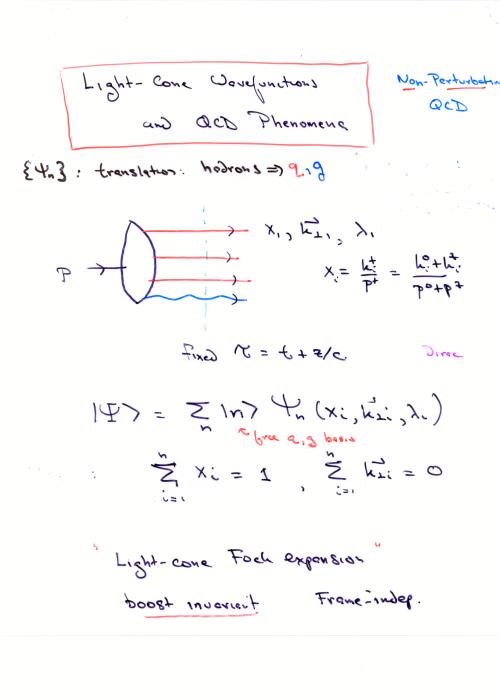 Light-Cone Wavefunctions
and QCD Phenomena
Non-Perturbati
QCD
{Ψn} : translation: hadrons ⇒ q, g
x₁, k⃗⊥₁, λ₁
P
xᵢ = kᵢ⁺/P⁺ = (kᵢ⁰+kᵢᶻ)/(P⁰+Pᶻ)
fixed τ = t + z/c
Dirac
|Ψ> = Σn |n> Ψn (xᵢ, k⃗⊥ᵢ, λᵢ)
free q, g basis
Σⁿᵢ₌₁ xᵢ = 1 , Σⁿᵢ₌₁ k⃗⊥ᵢ = 0
"Light-cone Fock expansion"
boost invariant Frame-indep.